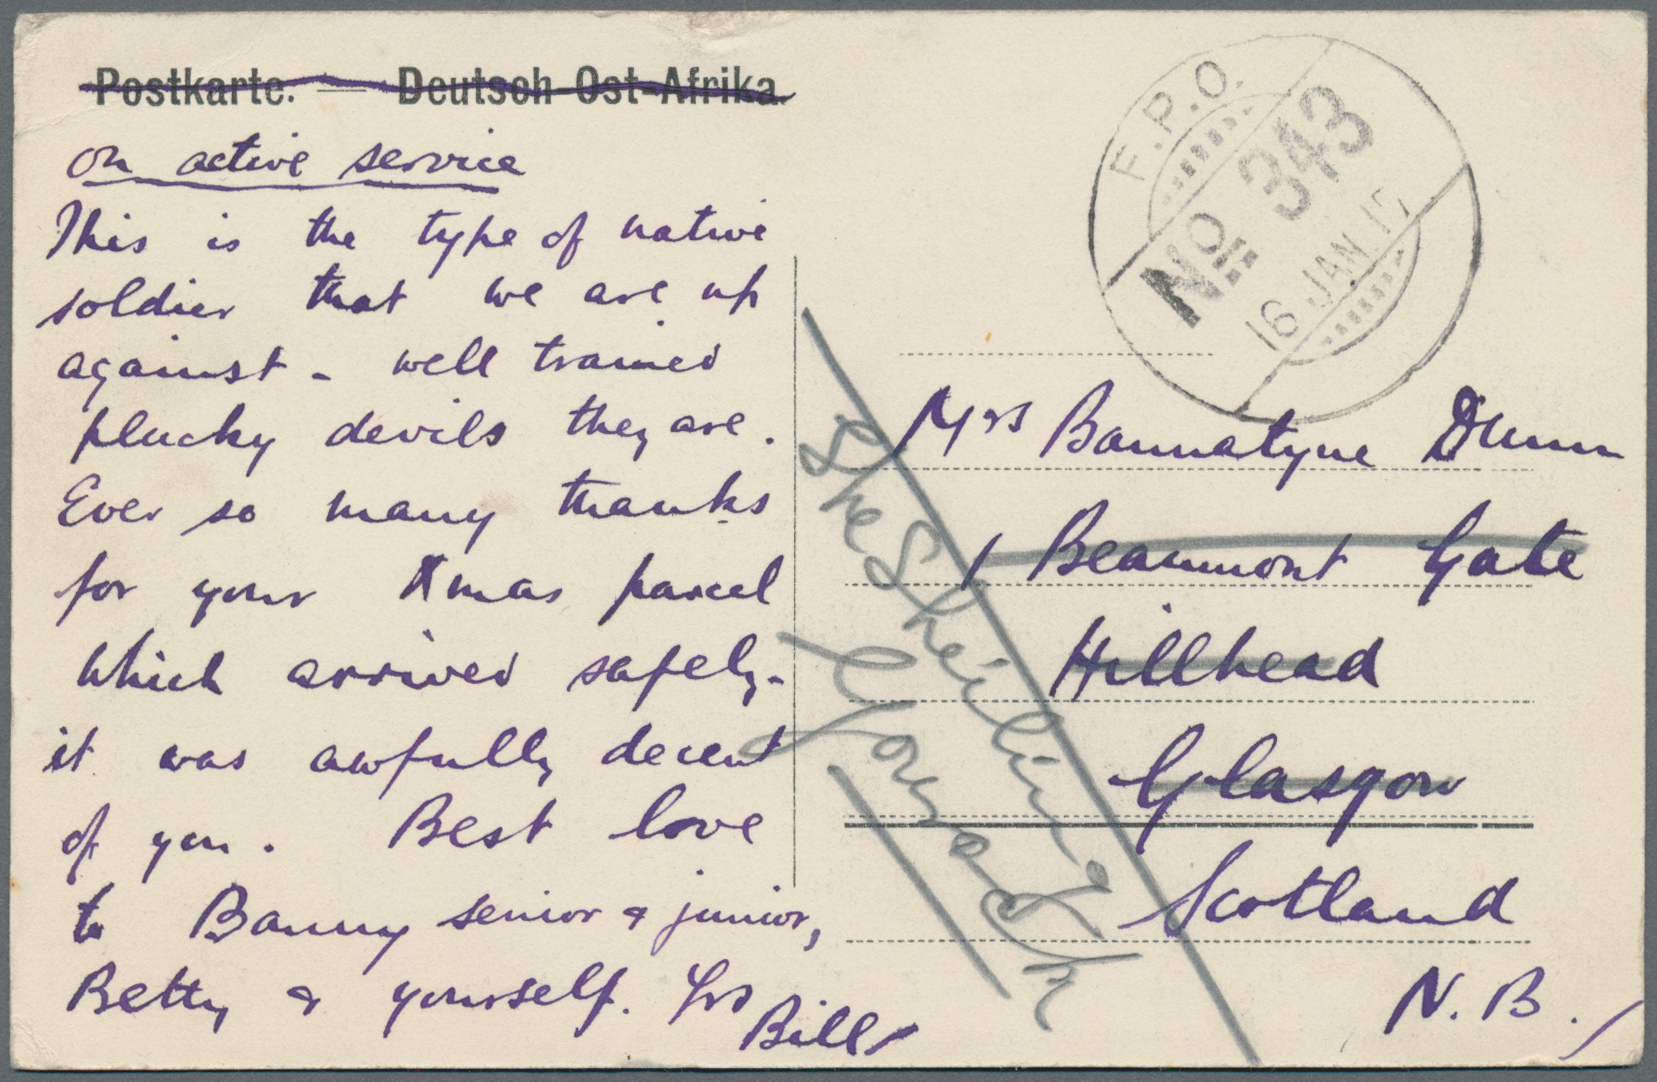 Postkarte. — Deutsch-Ost-Afrika.
On active service
This is the type of native
soldier that we are up
against - well trained
plucky devils they are.
Ever so many thanks
for your Xmas parcel
which arrived safely -
it was awfully decent
of you. Best love
to Banny senior & junior,
Betty & yourself. Yrs
Bill
F.P.O.
No 343
16 JAN. 17
Mrs Bannatyne Dunn
1 Beaumont Gate
Hillhead
Glasgow
Scotland
N.B.
The Sheiling
Gourock